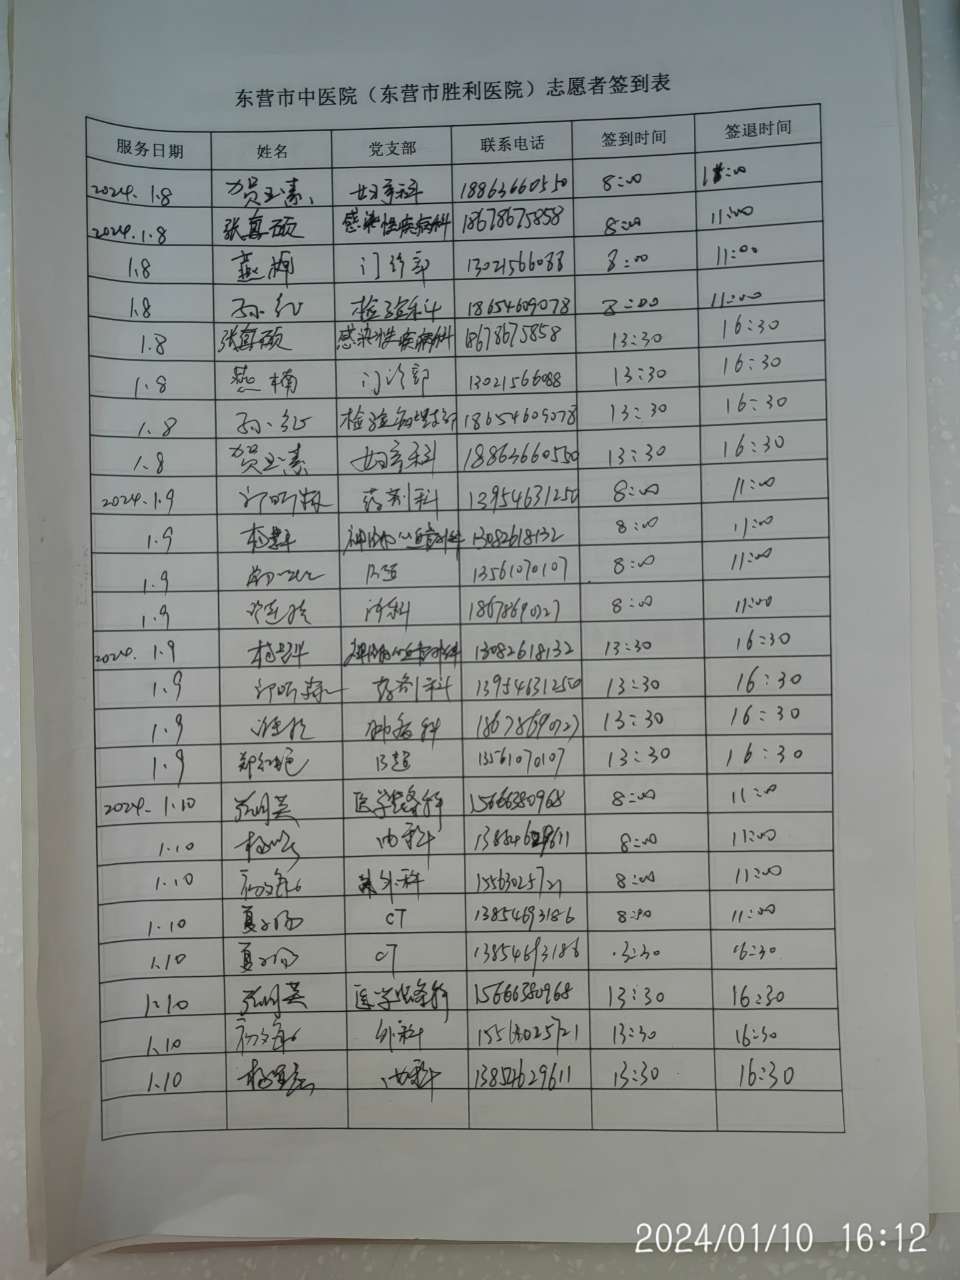 东营市中医院（东营市胜利医院）志愿者签到表
服务日期 姓名 党支部 联系电话 签到时间 签退时间
2024.1.8 贺玉素 妇产科 18863660550 8:00 11:00
2024.1.8 张真硕 感染性疾病科 18678675858 8:00 11:00
1.8 燕楠 门诊部 13021566088 8:00 11:00
1.8 孙红 检验科 18654609078 8:00 11:00
1.8 张真硕 感染性疾病科 18678675858 13:30 16:30
1.8 燕楠 门诊部 13021566088 13:30 16:30
1.8 孙红 检验病理支部 18654609078 13:30 16:30
1.8 贺玉素 妇产科 18863660550 13:30 16:30
2024.1.9 药剂科 13954631250 8:00 11:00
1.9 13082618132 8:00 11:00
1.9 B超 13561070107 8:00 11:00
1.9 18678690727 8:00 11:00
2024.1.9 13082618132 13:30 16:30
1.9 药剂科 13954631250 13:30 16:30
1.9 肺病科 18678690727 13:30 16:30
1.9 郑红艳 B超 13561070107 13:30 16:30
2024.1.10 张明英 医学装备科 15666380968 8:00 11:00
1.10 内科 8:00 11:00
1.10 外科 15563025721 8:00 11:00
1.10 CT 13854693186 8:00 11:00
1.10 CT 13854693186 13:30 16:30
1.10 张明英 医学装备科 15666380968 13:30 16:30
1.10 外科 15563025721 13:30 16:30
1.10 内科 13:30 16:30
2024/01/10 16:12